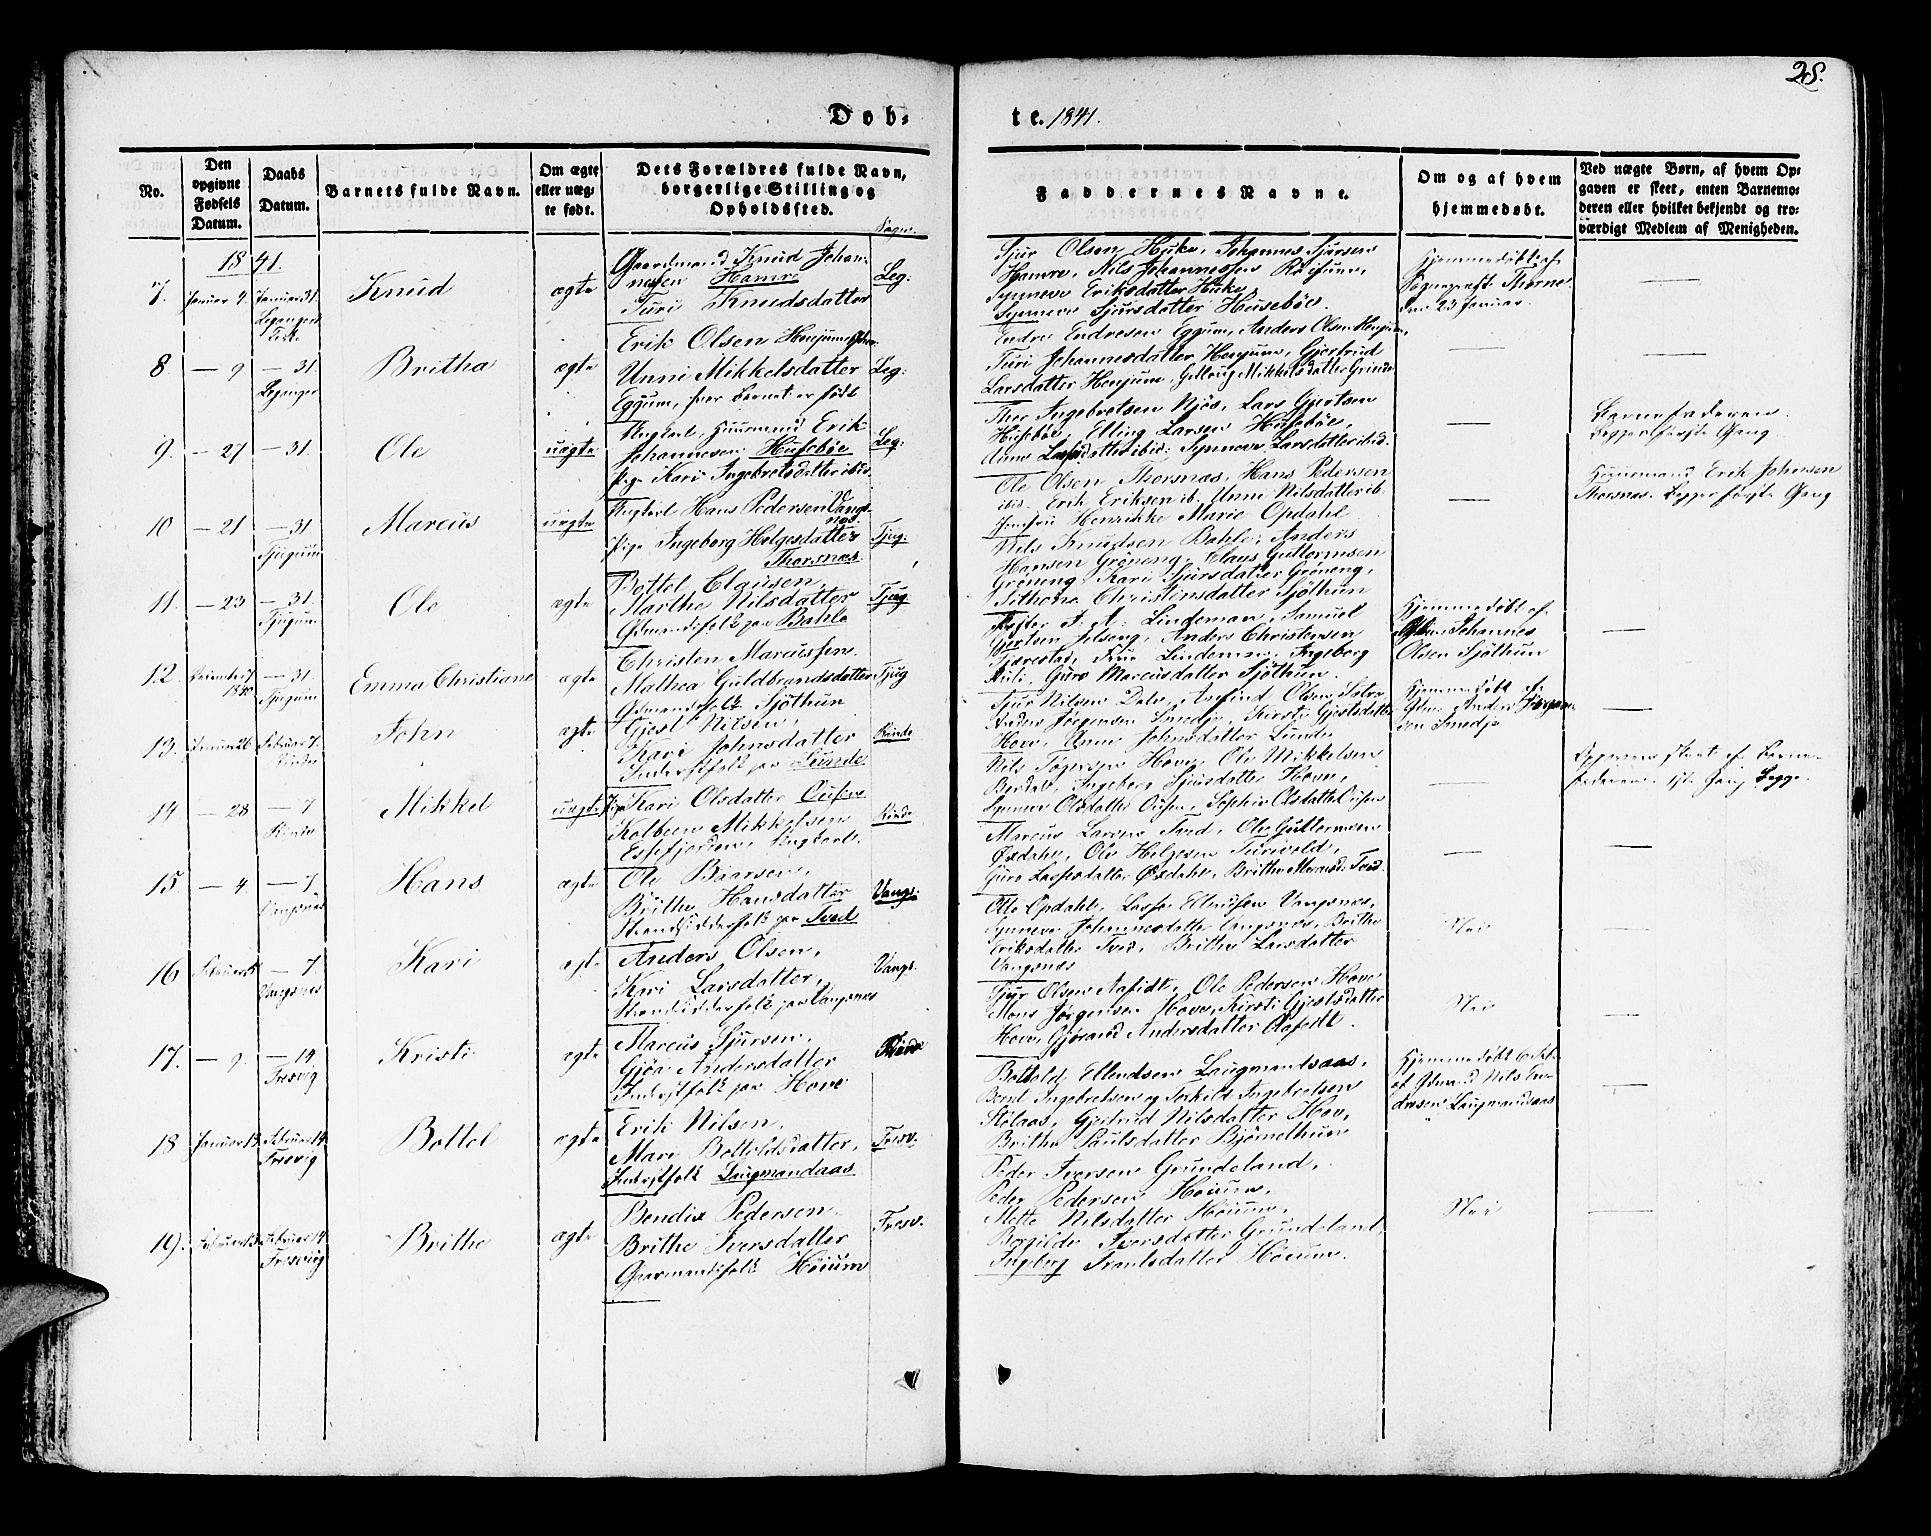 28.
Døb-
te. 1841.
No.
Den opgivne Fødsels Datum.
Daabs Datum.
Barnets fulde Navn.
Om ægte eller uægte født.
Dets Forældres fulde Navn, borgerlige Stilling og Opholdssted.
Sogn.
Faddernes Navne.
Om og af hvem hjemmedøbt.
Ved uægte Børn, af hvem Opgaven er skeet, enten Barnemoderen eller hvilket bekjendt og troværdigt Medlem af Menigheden.
1841.
7. Januar 4 Januar 31. Knud ægte
Gaardmand Knud Johannessen Hamre
Turi Knudsdatter
Leg:
Sjur Olsen Huke, Johannes Sjursen
Hamre, Nils Johannessen
Synneve Eriksdatter Huke,
Synneve Sjursdatter Husebøe.
Hjemmedøbt af
Thorne
23 Januar.
8. — 9 — 31. Leganger Britha ægte
Erik Olsen Henjum
Unni Mikkelsdatter
Eggum, hvor Barnet er født
Leg:
Endre Endresen Eggum, Anders Olsen Henjum,
Turi Johannesdatter Henjum, Gjertrud
Larsdatter Henjum, Mikkelsdatter Grinde
9. — 27 — 31. Ole uægte
Ungkarl, Erik
Johannesen Husebøe
Pige Kari Ingebretsdatter ibid
Leg:
Thor Ingebretsen Njøs, Lars Gjertsen
Husebøe, Elling Larsen Husebøe,
Anne ibid: Synneve Larsdatter ibid.
Barnefaderen.
første Gang
10 — 21 — 31 Tjugum Marcus uægte
Ungkarl Hans Pedersen Vangsnæs
Pige Ingeborg Helgesdatter
Thorsnæs
Tjug:
Ole Olsen Thorsnæs, Hans Pedersen
ibid. Erik Eriksen ib. Unni Nilsdatter ib.
Jomfru Henrikke Marie Opdahl
Erik Johnsen
Thorsnæs. første Gang
11. — 23 — 31. Tjugum Ole ægte
Bottol Clausen,
Marthe Nilsdatter
Gdmandsfolk paa Bahle
Tjug:
Nils Knudsen Bahle, Anders
Hansen Grøneng, Claus Guttormsen
Grøneng, Kari Sjursdatter Grøneng,
Christensdatter Sjøthun
12. 1840 — 31. Tjugum Emma Christiane ægte
Christen Marcussen
Mathea Guldbrandsdatter
Gdmandsfolk Sjøthun
Tjug
Lindeman, Samuel
Gjertsen Anders Christensen
Fjærestad, Frue Lindeman, Ingeborg
Guro Marcusdatter Sjøthun.
Hjemmedøbt af
Johannes
Olsen Sjøthun
13. Januar 26 Februar 7. John ægte
Gjest Nilsen,
Kari Johnsdatter
Inderstfolk paa Lunde
Rinde
Sjur Nilsen Dale, Arefind Olsen
Anders Jørgensen Smedje, Kirsti Gjestsdatter
Hove, Anne Johnsdatter Lunde
Hjemmedøbt af
Anders Jørgen-
sen Smedje
14 — 28 — 7 Rinde Mikkel uægte
Pige Kari Olsdatter
Kolbeen Mikkelsen
Essefjorden, Ungkarl.
Rinde
Nils Hove, Ole Mikkelsen
Ingeborg Sjursdatter Hove,
Synneve Olsdatter Sophie Olsdatter
af Barnefaderen. 1st Gang Begge.
15 — 4 — 7 Vangsnæs Hans ægte
Ole
Brithe Hansdatter
Strandsidderfolk paa Tved
Vangs:
Marcus Larsen Tved, Ole Guttormsen
Ole Helgesen
Guro Brithe Tved.
16 Februar — 7. Vangsnæs Kari ægte
Anders Olsen,
Kari Larsdatter,
Strandsidderfolk paa Vangsnæs
Vangs.
Otto Opdahl, Lasse Ellendsen Vangsnæs,
Synneve Johannesdatter Vangsnæs, Brithe
Eriksdatter Tved, Brithe Larsdatter
Vangsnæs
Nei
17. — 9. — 14 Fresvig Kristi ægte
Marcus Sjursen,
Gjøa Andersdatter
Inderstfolk paa Hove
Sjur Olsen Ole Pedersen Hove
Mons Jørgensen Hove, Kirsti Gjestsdatter
Hove, Andersdatter
Nei
18 Januar 13. Februar 14. Fresvig Bottol ægte
Erik Nilsen,
Mari Bottolsdatter,
Inderstfolk Laugmandaas
Fresv.
Bottolf Ellendsen Laugmandsaas,
Bernt Ingebretsen og Torkild Ingebretsen
Stølaas, Gjertrud Nilsdatter Hov,
Brithe Paulsdatter Bjørnethun
Hjemmedøbt 6 Feb-
af Gdmand Nils
Laugmandsaas
19. Februar 13. Februar 14. Fresvig Brithe ægte
Bendix Pedersen
Brithe Iversdatter
Gaarmandsfolk Høium
Fresv.
Peder Iversen Grundeland,
Peder Pedersen Høium,
Mette Nilsdatter Høium,
Borgilde Iversdatter Grundeland,
Ingeborg Frantsdatter Høium.
Nei